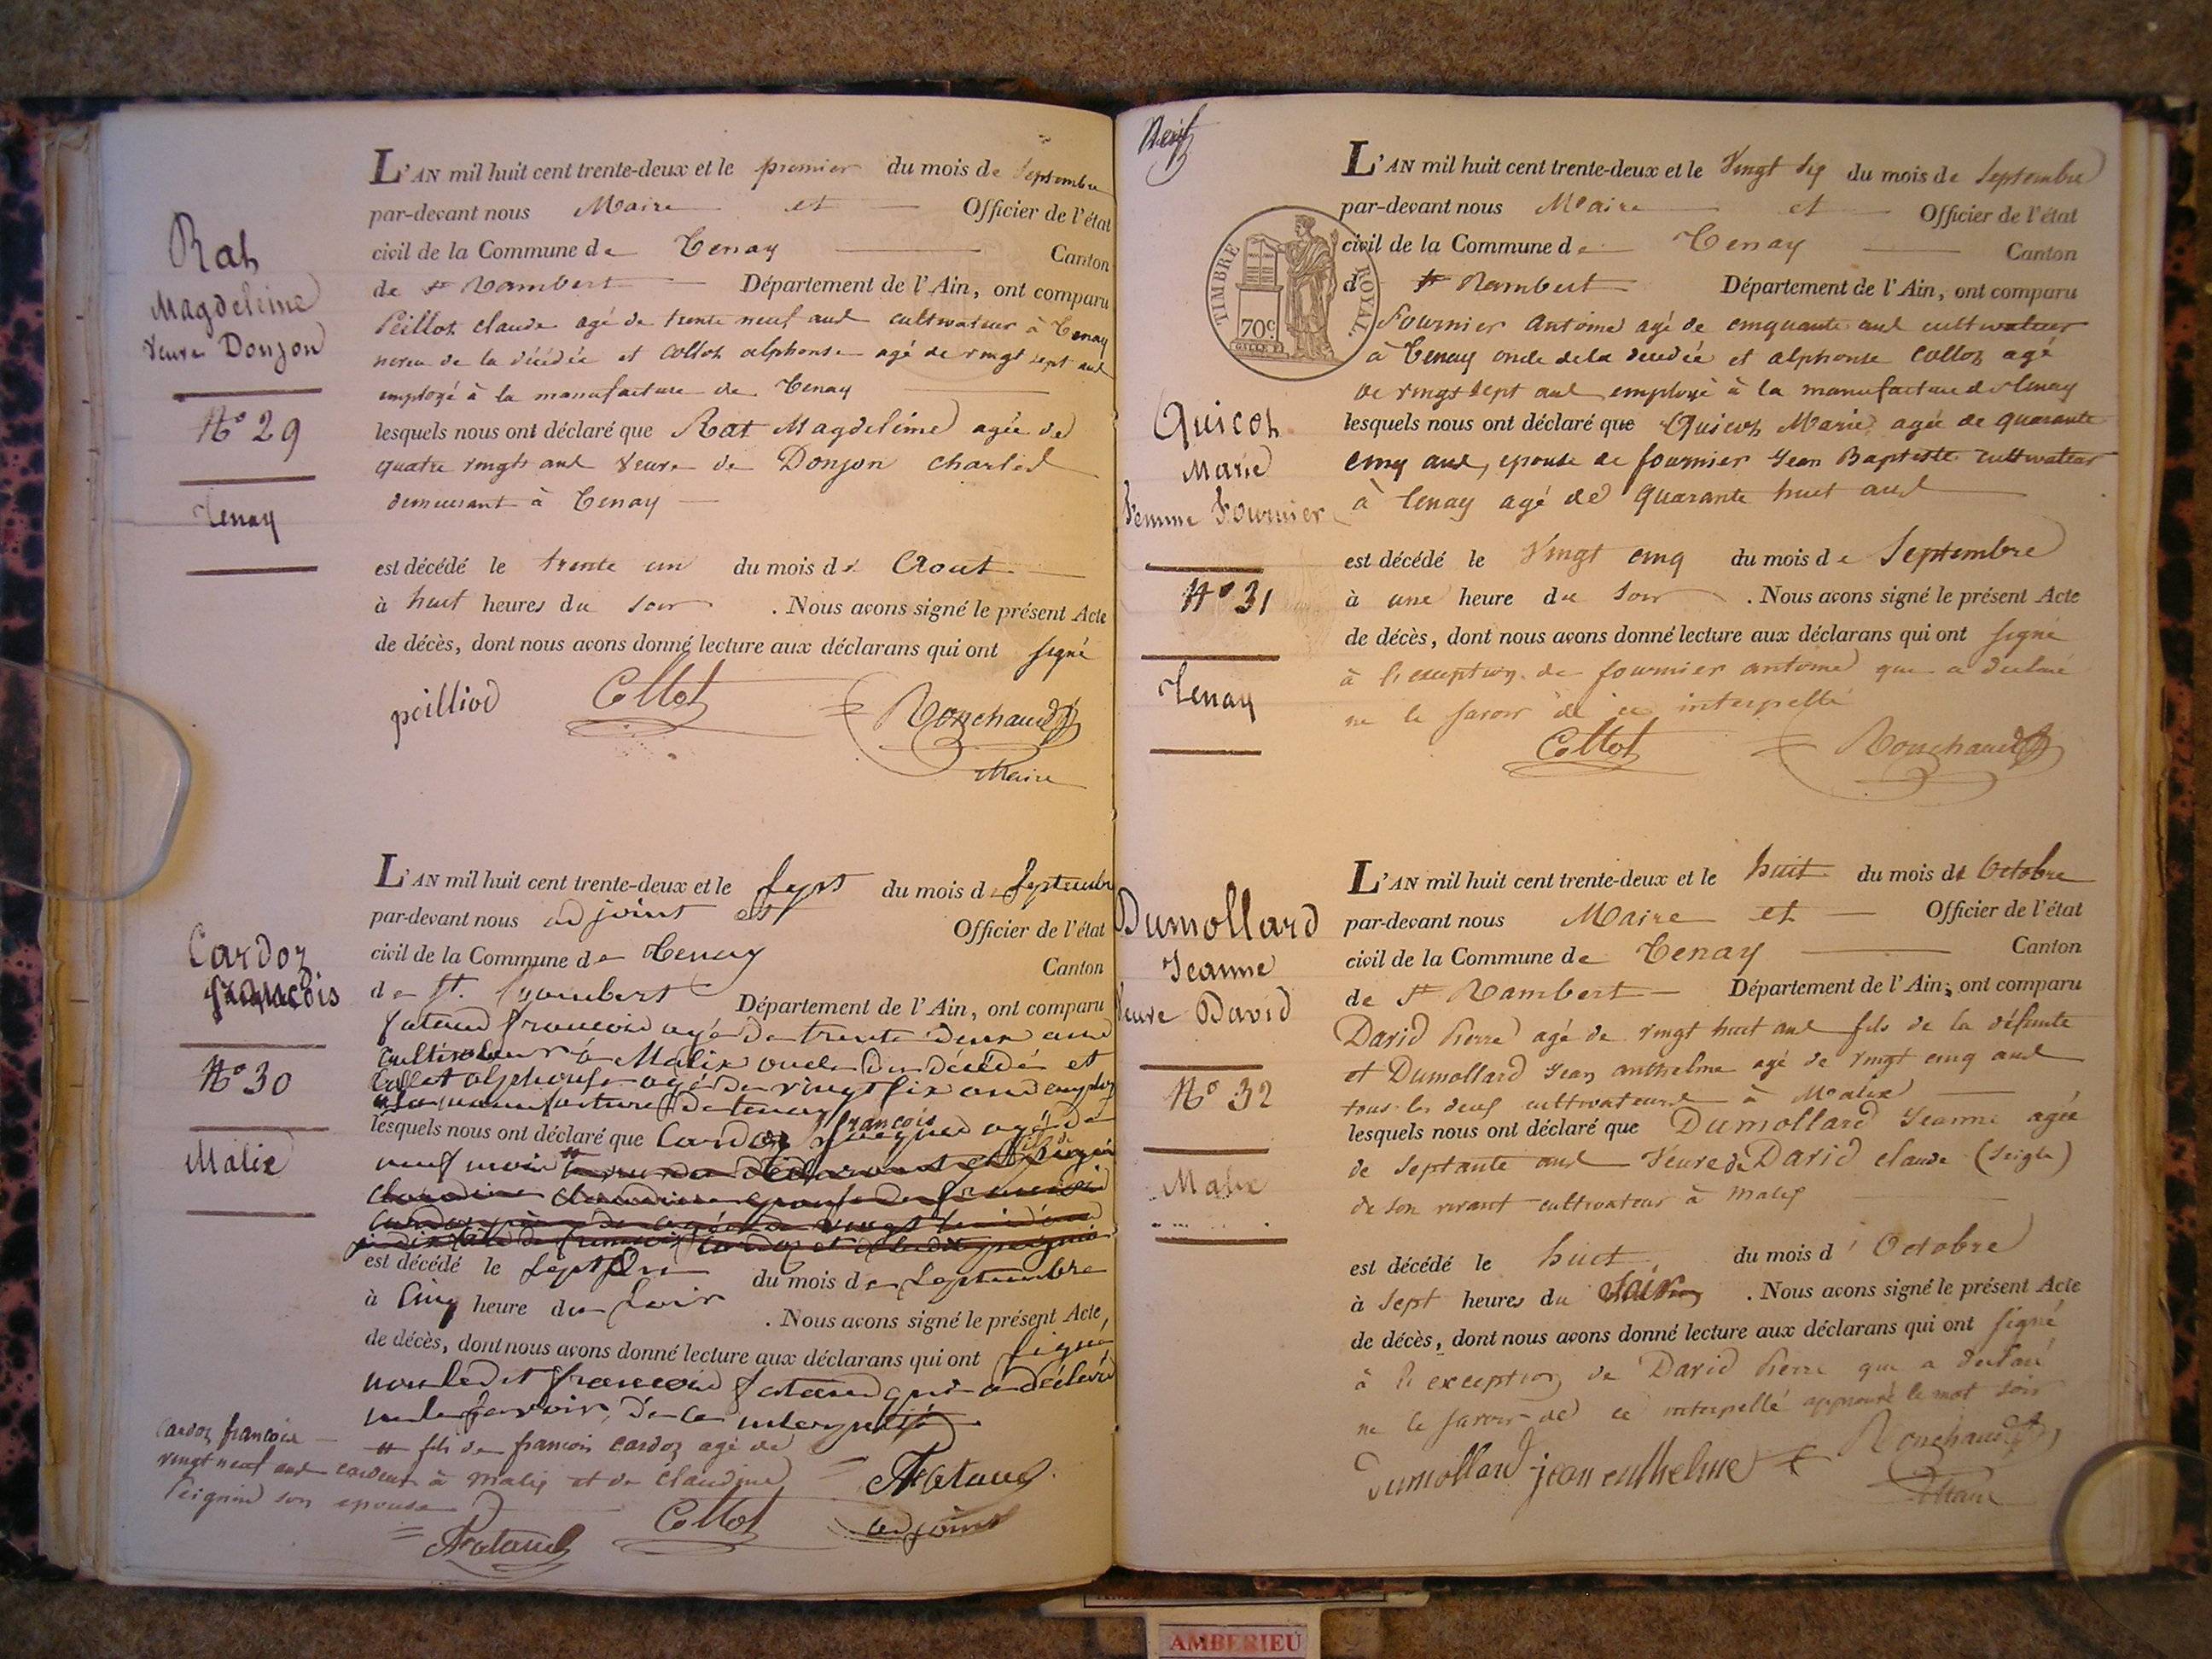 Rat
Magdeleine
veuve Donjon
N° 29
Tenay
L'AN mil huit cent trente-deux et le premier du mois de Septembre
par-devant nous Maire et Officier de l'état
civil de la Commune de Tenay Canton
de St Rambert Département de l'Ain, ont comparu
Peillot claude agé de trente neuf ans cultivateur à Tenay
neveu de la décédée et Collot alphonse agé de vingt sept ans
employé à la manufacture de Tenay
lesquels nous ont déclaré que Rat Magdeleine agée de
quatre vingts ans veuve de Donjon charles
demeurant à Tenay
est décédé le trente un du mois de Aout
à huit heures du soir . Nous avons signé le présent Acte
de décès, dont nous avons donné lecture aux déclarans qui ont signé
peilliod Collot Ronchaud
Maire
Cardoz
françois
N° 30
Malix
L'AN mil huit cent trente-deux et le Sept du mois de Septembre
par-devant nous adjoint et Officier de l'état
civil de la Commune de Tenay Canton
de St. Rambert Département de l'Ain, ont comparu
françois agé de trente deux ans
cultivateur à Malix oncle du décédé et
Collot alphonse agé de vingt six ans employé
à la manufacture de tenay
lesquels nous ont déclaré que Cardoz françois agé de
neuf mois
est décédé le Sept du mois de Septembre
à Cinq heure du Soir . Nous avons signé le présent Acte,
de décès, dont nous avons donné lecture aux déclarans qui ont Signé
non ledit françois qui a déclaré
ne le savoir, de ce interpellé
Cardoz francois
fils de francois Cardoz agé de
vingt neuf ans cardeur à malix et de claudine
Peignin son epouse
Collot
adjoint
L'AN mil huit cent trente-deux et le Vingt six du mois de Septembre
par-devant nous Maire et Officier de l'état
TIMBRE ROYAL
70c
civil de la Commune de Tenay Canton
d St Rambert Département de l'Ain, ont comparu
Fournier Antoine agé de cinquante ans cultivateur
à Tenay oncle de la décédée et alphonse Collot agé
de vingt sept ans employé à la manufacture de Tenay
Quicot
Marie
femme Fournier
N° 31
Tenay
lesquels nous ont déclaré que Quicot Marie agée de quarante
cinq ans, epouse de fournier Jean Baptiste cultivateur
à Tenay agé de quarante huit ans
est décédé le Vingt cinq du mois de Septembre
à une heure du Soir . Nous avons signé le présent Acte
de décès, dont nous avons donné lecture aux déclarans qui ont signé
à l'exception de fournier antoine qui a declaré
ne le savoir de ce interpellé
Collot Ronchaud
Dumollard
Jeanne
Veuve David
N° 32
Malix
L'AN mil huit cent trente-deux et le huit du mois de Octobre
par-devant nous Maire et Officier de l'état
civil de la Commune de Tenay Canton
de St Rambert Département de l'Ain, ont comparu
David Pierre agé de vingt huit ans fils de la défunte
et Dumollard Jean anthelme agé de vingt cinq ans
tous les deux cultivateurs à Malix
lesquels nous ont déclaré que Dumollard Jeanne agée
de septante ans Veuve de David claude (Seigle)
de son vivant cultivateur à malix
est décédé le huit du mois d' Octobre
à Sept heures du Soir . Nous avons signé le présent Acte
de décès, dont nous avons donné lecture aux déclarans qui ont signé
à l'exception de David Pierre qui a declaré
ne le savoir de ce interpellé approuvé le mot soir
Dumollard jean enthelme Ronchaud
Maire
AMBERIEU